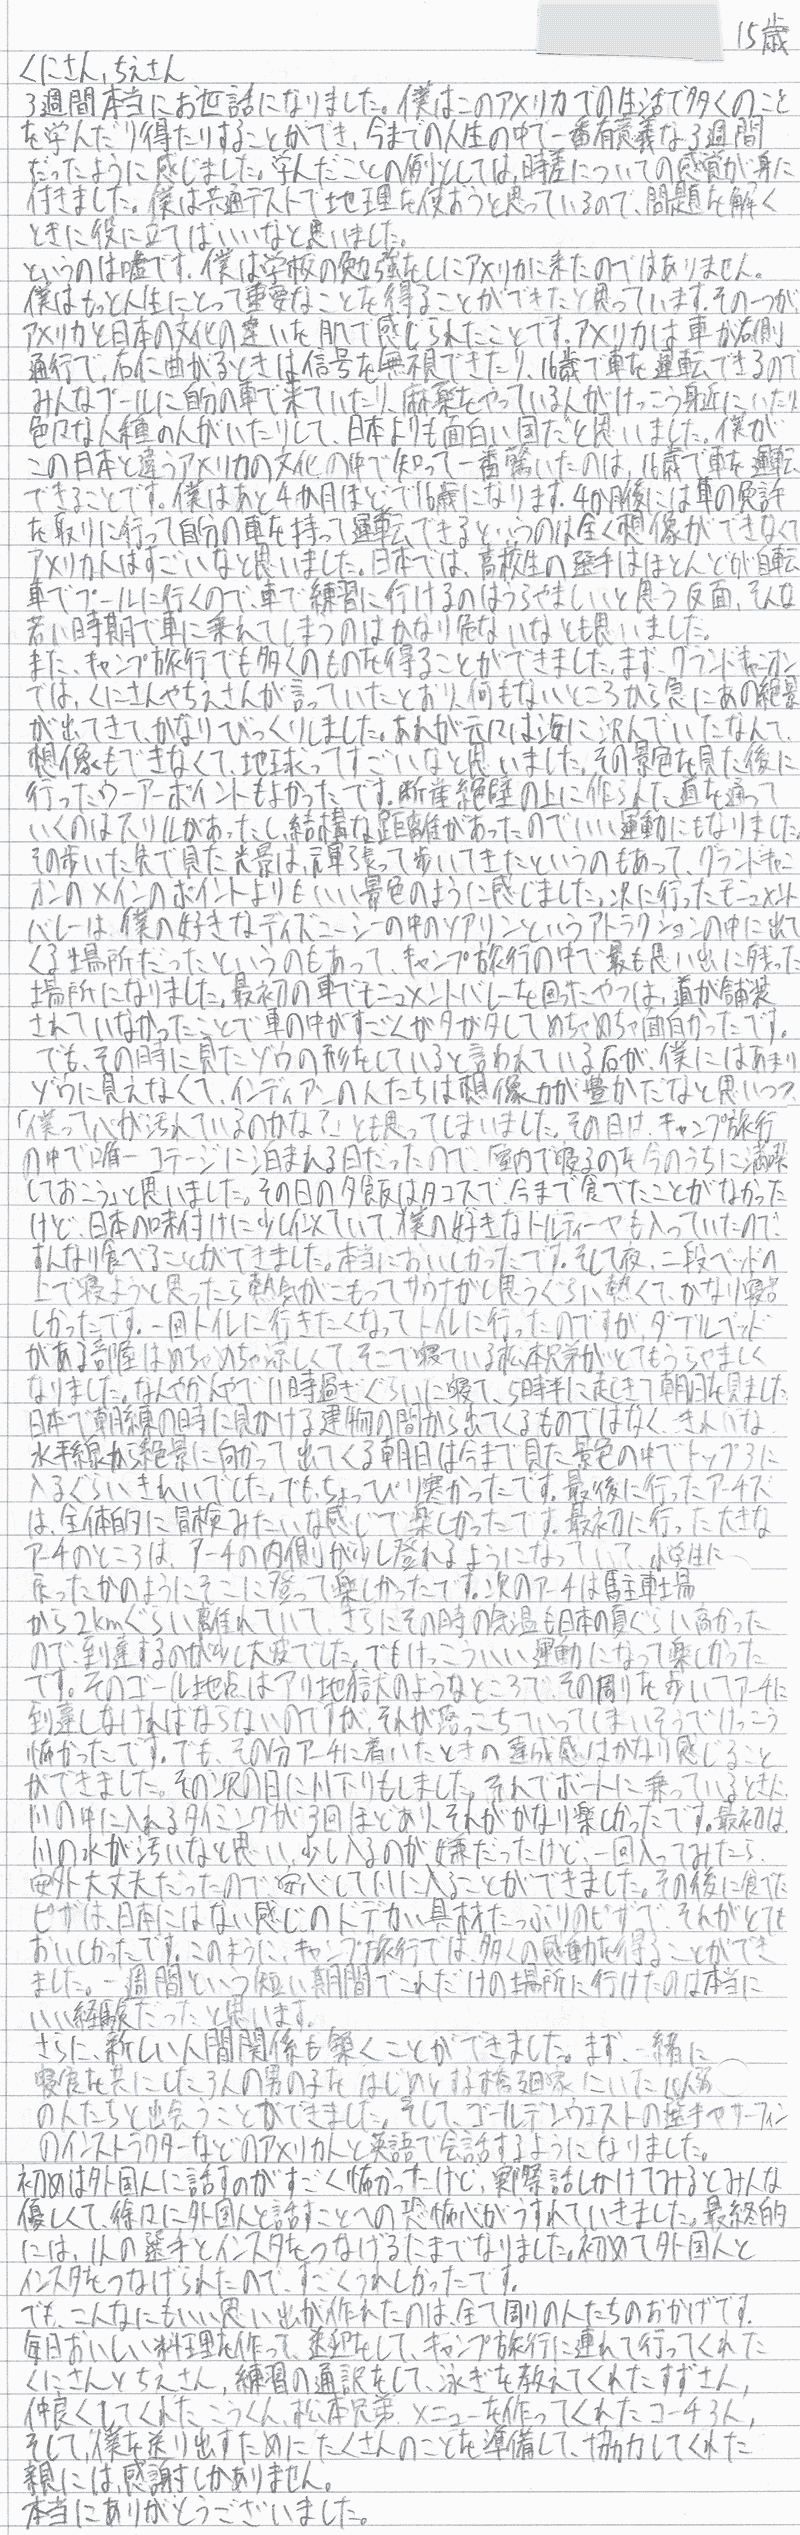 15歳
くにさん,ちえさん
3週間本当にお世話になりました。僕はこのアメリカでの生活で多くのこと
を学んだり得たりすることができ、今までの人生の中で一番有意義な3週間
だったように感じました。学んだことの例としては、時差についての感覚が身に
付きました。僕は共通テストで地理を使おうと思っているので、問題を解く
ときに役に立てばいいなと思いました。
というのは嘘です。僕は学校の勉強をしにアメリカに来たのではありません。
僕はもっと人生にとって重要なことを得ることができたと思っています。その一つが、
アメリカと日本の文化の違いを肌で感じられたことです。アメリカは車が右側
通行で、右に曲がるときは信号を無視できたり、16歳で車を運転できるので
みんなプールに自分の車で来ていたり、麻薬をやっている人がけっこう身近にいたり
色々な人種の人がいたりして、日本よりも面白い国だと思いました。僕が
この日本と違うアメリカの文化の中で知って一番驚いたのは、16歳で車を運転
できることです。僕はあと4か月ほどで16歳になります。4か月後には車の免許
を取りに行って自分の車を持って運転できるというのは全く想像ができなくて
アメリカ人はすごいなと思いました。日本では、高校生の選手はほとんどが自転
車でプールに行くので、車で練習に行けるのはうらやましいと思う反面、そんな
若い時期で車に乗れてしまうのはかなり危ないなとも思いました。
また、キャンプ旅行でも多くのものを得ることができました。まず、グランドキャニオン
では、くにさんやちえさんが言っていたとおり、何もないところから急にあの絶景
が出てきて、かなりびっくりしました。あれが元々は海に沈んでいたなんて、
想像もできなくて、地球ってすごいなと思いました。その景色を見た後に
行ったウーアーポイントもよかったです。断崖絶壁の上に作られた道を通って
いくのはスリルがあったし、結構な距離があったのでいい運動にもなりました。
その歩いた先で見た光景は、頑張って歩いてきたというのもあって、グランドキャニ
オンのメインのポイントよりもいい景色のように感じました。次に行ったモニュメント
バレーは、僕の好きなディズニーシーの中のソアリンというアトラクションの中に出て
くる場所だったというのもあって、キャンプ旅行の中で最も思い出に残った
場所になりました。最初の車でモニュメントバレーを回ったやつは、道が舗装
されていなかったことで車の中がすごくガタガタしてめちゃめちゃ面白かったです。
でも、その時に見たゾウの形をしていると言われている石が、僕にはあまり
ゾウに見えなくて、インディアンの人たちは想像力が豊かだなと思いつつ、
「僕って心が汚れているのかな?」とも思ってしまいました。その日は、キャンプ旅行
の中で唯一コテージに泊まれる日だったので、「室内で寝るのを今のうちに満喫
しておこう」と思いました。その日の夕飯はタコスで、今まで食べたことがなかった
けど、日本の味付けに少し似ていて、僕の好きなトルティーヤも入っていたので、
すんなり食べることができました。本当においしかったです。そして夜、二段ベッドの
上で寝ようと思ったら熱気がこもってサウナかと思うぐらい熱くて、かなり寝苦
しかったです。一回トイレに行きたくなってトイレに行ったのですが、ダブルベッド
がある部屋はめちゃめちゃ涼しくて、そこで寝ている松本兄弟がとてもうらやましく
なりました。なんやかんやで11時過ぎぐらいに寝て、5時半に起きて朝日を見ました
日本で朝練の時に見かける建物の間から出てくるものではなく、きれいな
水平線から絶景に向かって出てくる朝日は今まで見た景色の中でトップ3に
入るぐらいきれいでした。でも、ちょっぴり寒かったです。最後に行ったアーチズ
は、全体的に冒検みたいな感じで楽しかったです。最初に行った大きな
アーチのところは、アーチの内側が少し登れるようになっていて、小学生に
戻ったかのようにそこに登って楽しかったです。次のアーチは駐車場
から2kmぐらい離れていて、さらにその時の気温も日本の夏ぐらい高かった
ので、到達するのが少し大変でした。でもけっこういい運動になって楽しかった
です。そのゴール地点はアリ地獄のようなところで、その周りを歩いてアーチに
到達しなければならないのですが、それが落っこちていってしまいそうでけっこう
怖かったです。でも、その分アーチに着いたときの達成感はかなり感じること
ができました。その次の日に川下りもしました。それでボートに乗っているときに、
川の中に入れるタイミングが3回ほどあり、それがかなり楽しかったです。最初は、
川の水が汚いなと思い、少し入るのが嫌だったけど、一回入ってみたら、
案外大丈夫だったので安心して川に入ることができました。その後に食べた
ピザは、日本にはない感じのドデカい具材たっぷりのピザで、それがとても
おいしかったです。このように、キャンプ旅行では、多くの感動を得ることができ
ました。一週間という短い期間でこれだけの場所に行けたのは本当に
いい経験だったと思います。
さらに、新しい人間関係も築くことができました。まず、一緒に
寝食を共にした3人の男の子をはじめとする橋廻家にいた
の人たちと出会うことができました。そして、ゴールデンウエストの選手やサーフィン
のインストラクターなどのアメリカ人と英語で会話するようになりました。
初めは外国人に話すのがすごく怖かったけど、実際話しかけてみるとみんな
優しくて、徐々に外国人と話すことへの恐怖心がうすれていきました。最終的
には、1人の選手とインスタをつなげるたまでなりました。初めて外国人と
インスタをつなげられたので、すごくうれしかったです。
でも、こんなにもいい思い出が作れたのは、全て周りの人たちのおかげです。
毎日おいしい料理を作って、送迎をして、キャンプ旅行に連れて行ってくれた
くにさんとちえさん,練習の通訳をして、泳ぎを教えてくれたすずさん,
仲良くしてくれたこうくん、松本兄弟、メニューを作ってくれたコーチ3人,
そして,僕を送り出すためにたくさんのことを準備して、協力してくれた
親には,感謝しかありません。
本当にありがとうございました。